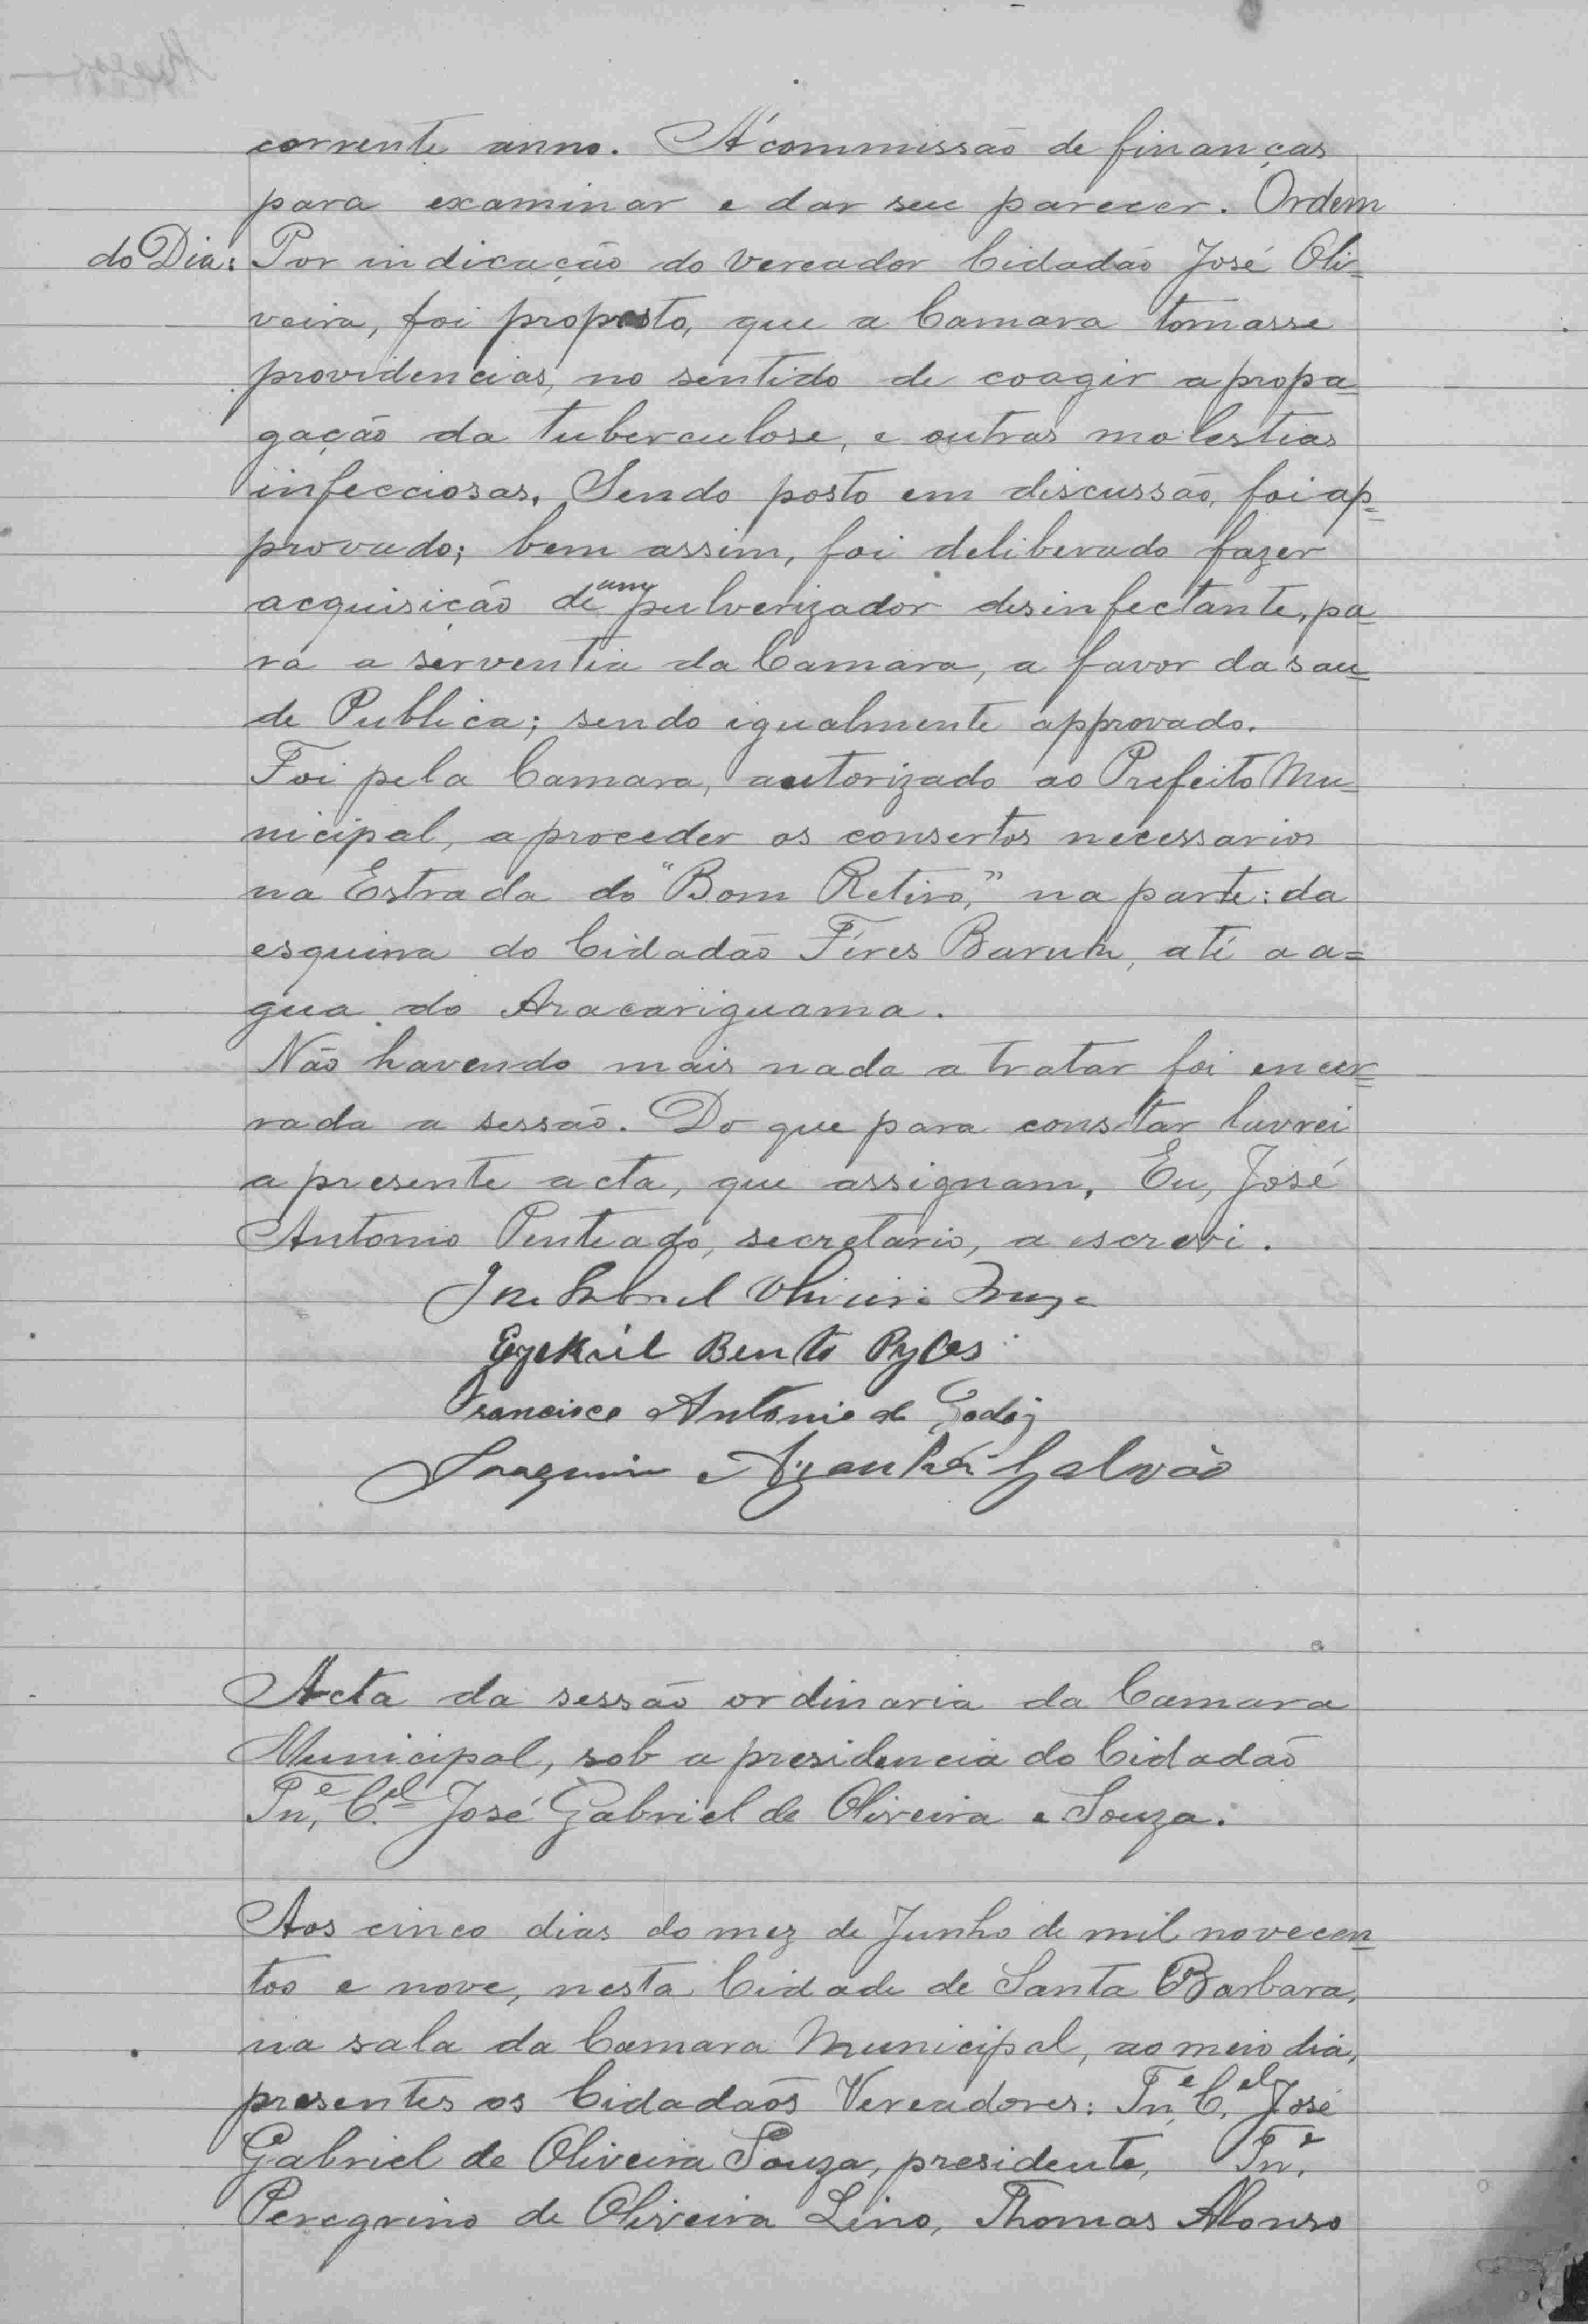 corrente anno. Á commissão de finanças
para examinar e dar seu parecer. Ordem
do Dia: Por indicação do vereador Cidadão José Oli=
veira, foi proposto, que a Camara tomasse
providencias, no sentido de coagir a propa=
gação da tuberculose, e outras molestias
infecciosas. Sendo posto em discussão, foi ap=
provado; bem assim, foi deliberado fazer
acquisição de um pulverizador desinfectante, pa=
ra a serventia da Camara, a favor da sau=
de Publica; sendo igualmente approvado.
Foi pela Camara, autorizado ao Prefeito Mu=
nicipal, a proceder os consertos necessarios
na Estrada do "Bom Retiro," na parte: da
esquina do Cidadão Féres Baruk, até a a=
gua do Aracariguama.
Não havendo mais nada a tratar foi encer=
rada a sessão. Do que para constar lavrei
a presente acta, que assignam, Eu, José
Antonio Penteado, secretario, a escrevi.
José Gabriel Oliveira Souza
Ezekiel Bento Pyles
Francisco Antonio de Godoy
Joaquim Azanha Galvão
Acta da sessão ordinaria da Camara
Municipal, sob a presidencia do Cidadão
Tn,e C.el José Gabriel de Oliveira e Souza.
Aos cinco dias do mez de Junho de mil novecen=
tos e nove, nesta Cidade de Santa Barbara,
na sala da Camara Municipal, ao meio dia,
presentes os Cidadãos Vereadores: Tn,e C.el José
Gabriel de Oliveira Souza, presidente, Tn.e
Peregrino de Oliveira Lino, Thomas Alonso